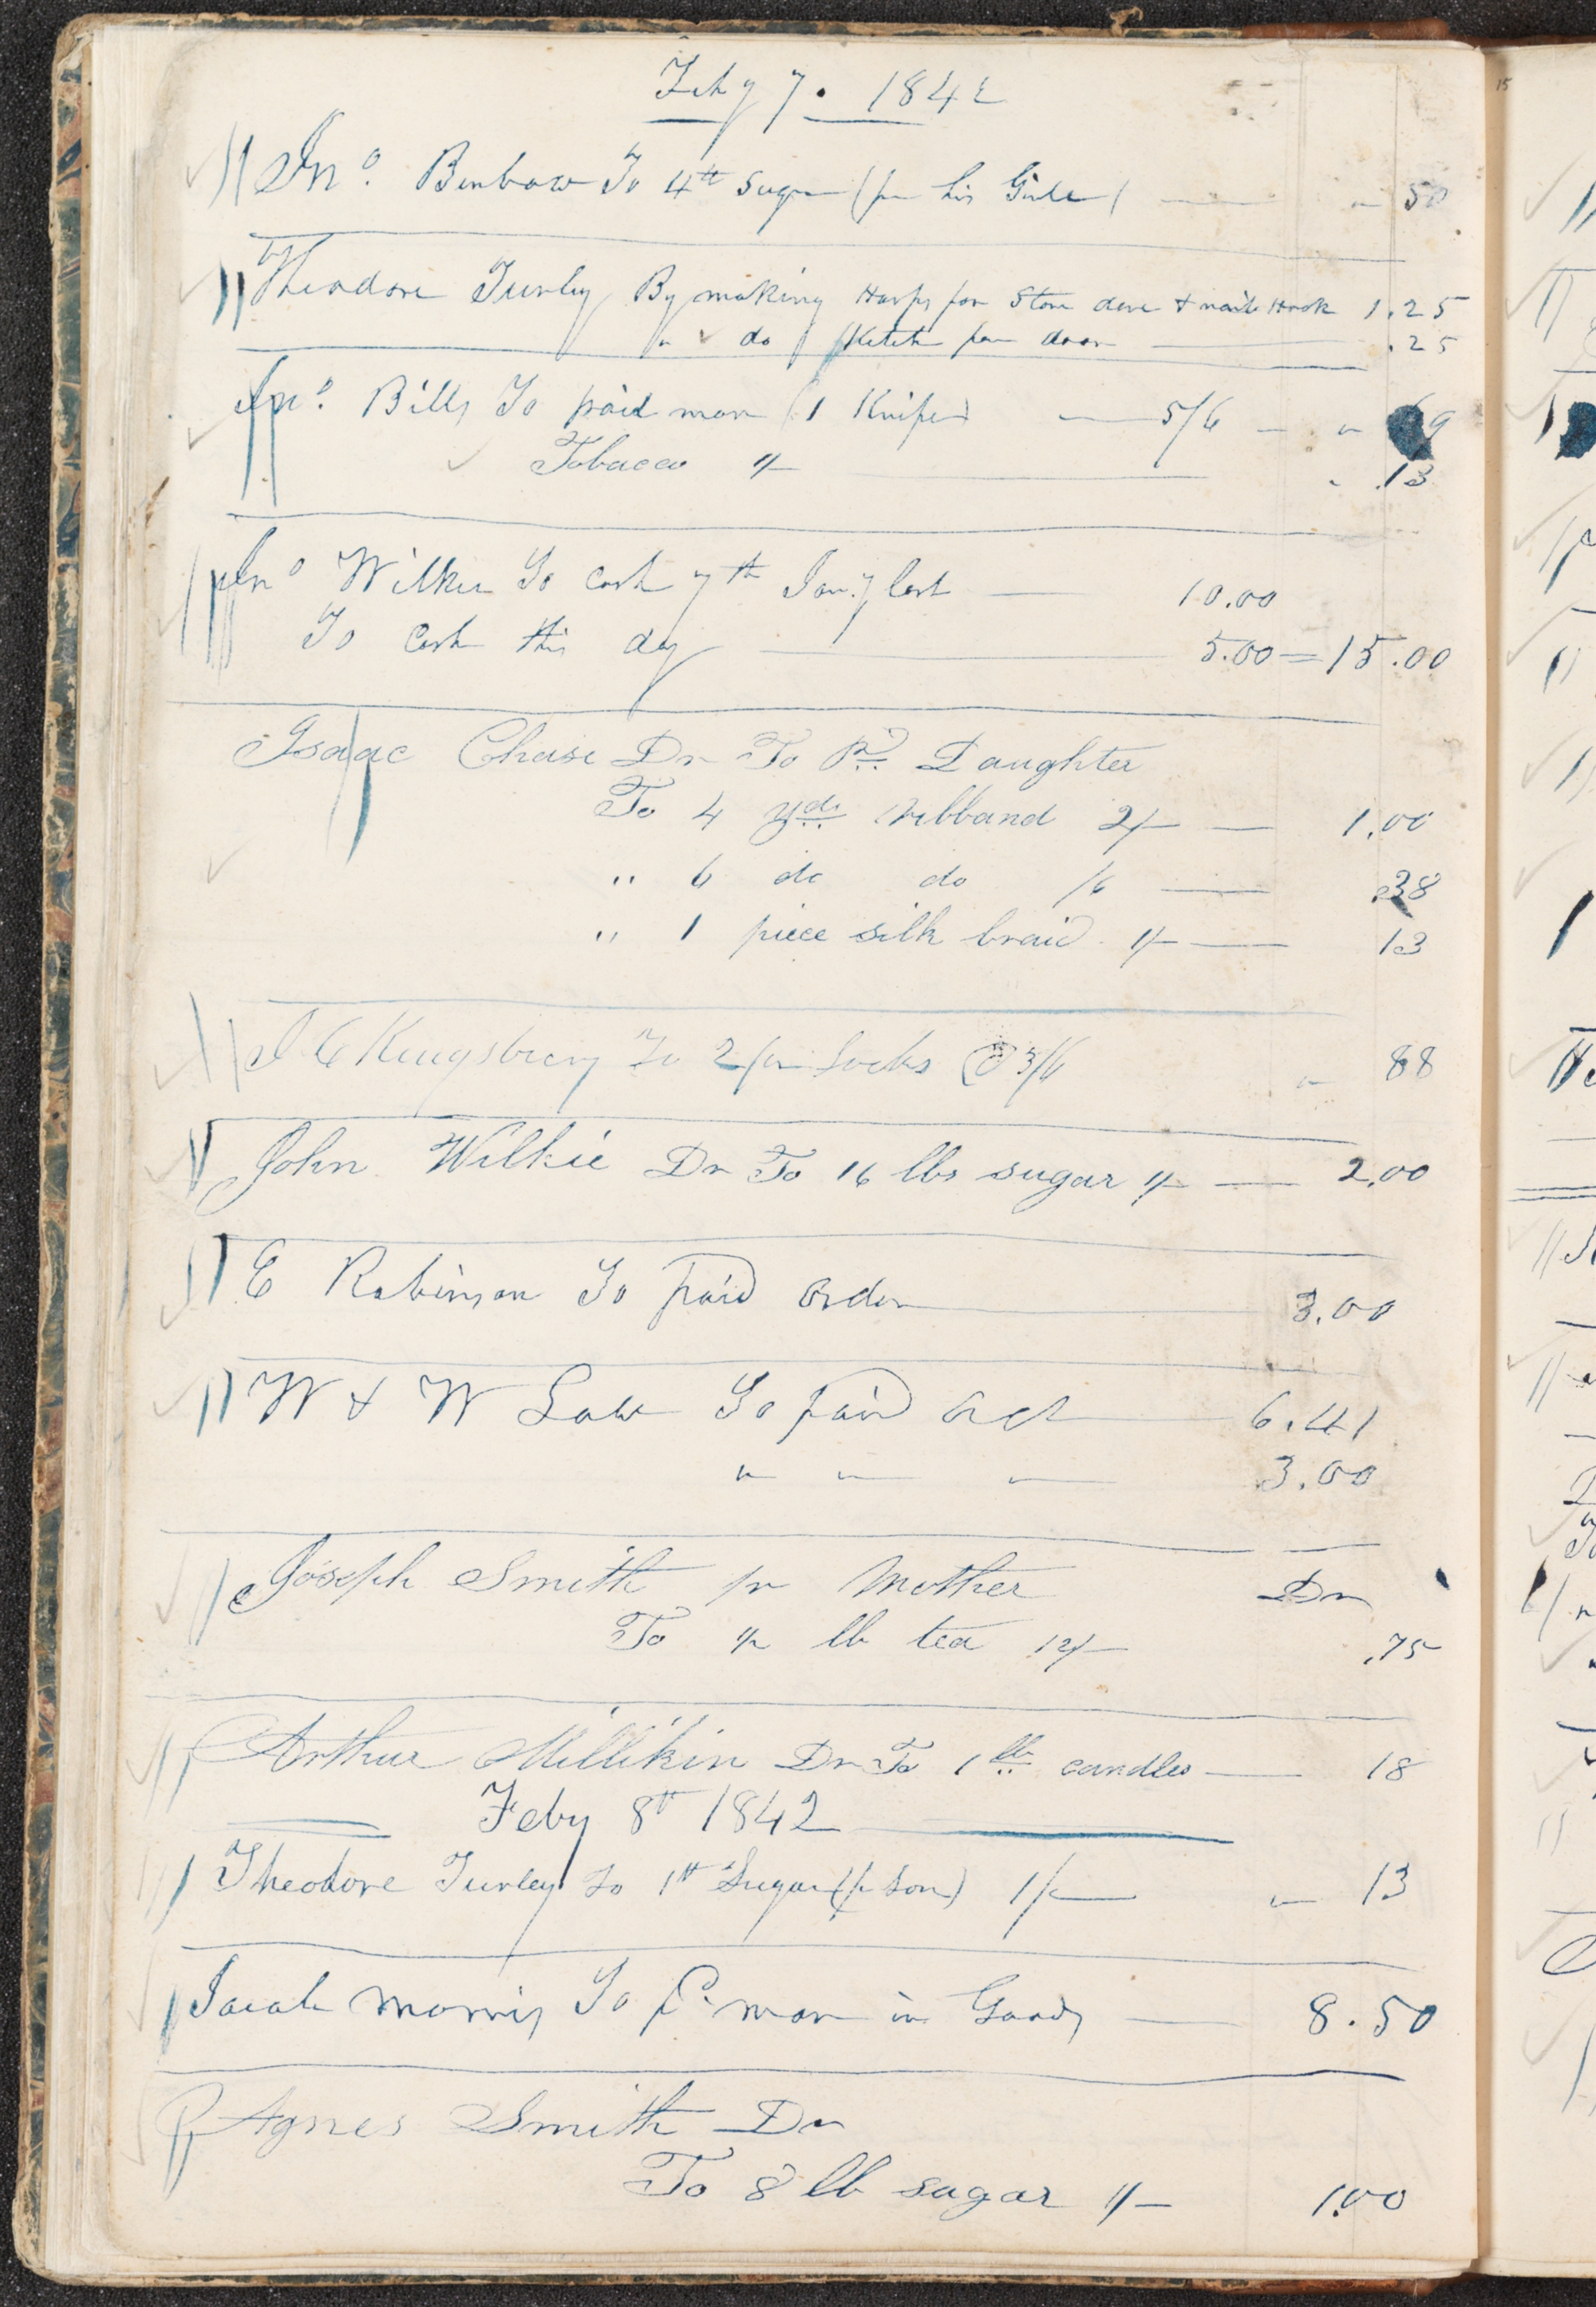 Feby 7. 1842
Jno. Benbow To 4 lb Sugar (pr his Girle) " 50
Theodore Turley By making Hasps for Store dore & nail Hook 1.25
" do for door .25
Jno. Bills To paid man (1 Knife) 5/6 " 69
Tobacco 1/- " .13
Jno Wilkie To Cash 7th Jany last 10.00
To Cash this day 5.00 = 15.00
Isaac Chase Dr To Pr Daughter
To 4 yds ribband 2/- 1.00
" 6 do do /6 .38
" 1 piece silk braid 1/- 13
J C Kingsbury To 2 pr Socks @ 3/6 " 88
John Wilkie Dr To 16 lbs sugar 1/- 2.00
E Robinson To paid order 3.00
W & W Law To paid 6.41
" " " 3.00
Joseph Smith pr Mother Dr
To ½ lb tea 12/- .75
Arthur Millikin Dr To 1 lb candles 18
Feby 8th 1842
Theodore Turley To 1 lb Sugar (pr Son) 1/- " 13
Jacob Morris To pd man in Goods 8.50
Agnes Smith Dr
To 8 lb sugar 1/- 1.00
15